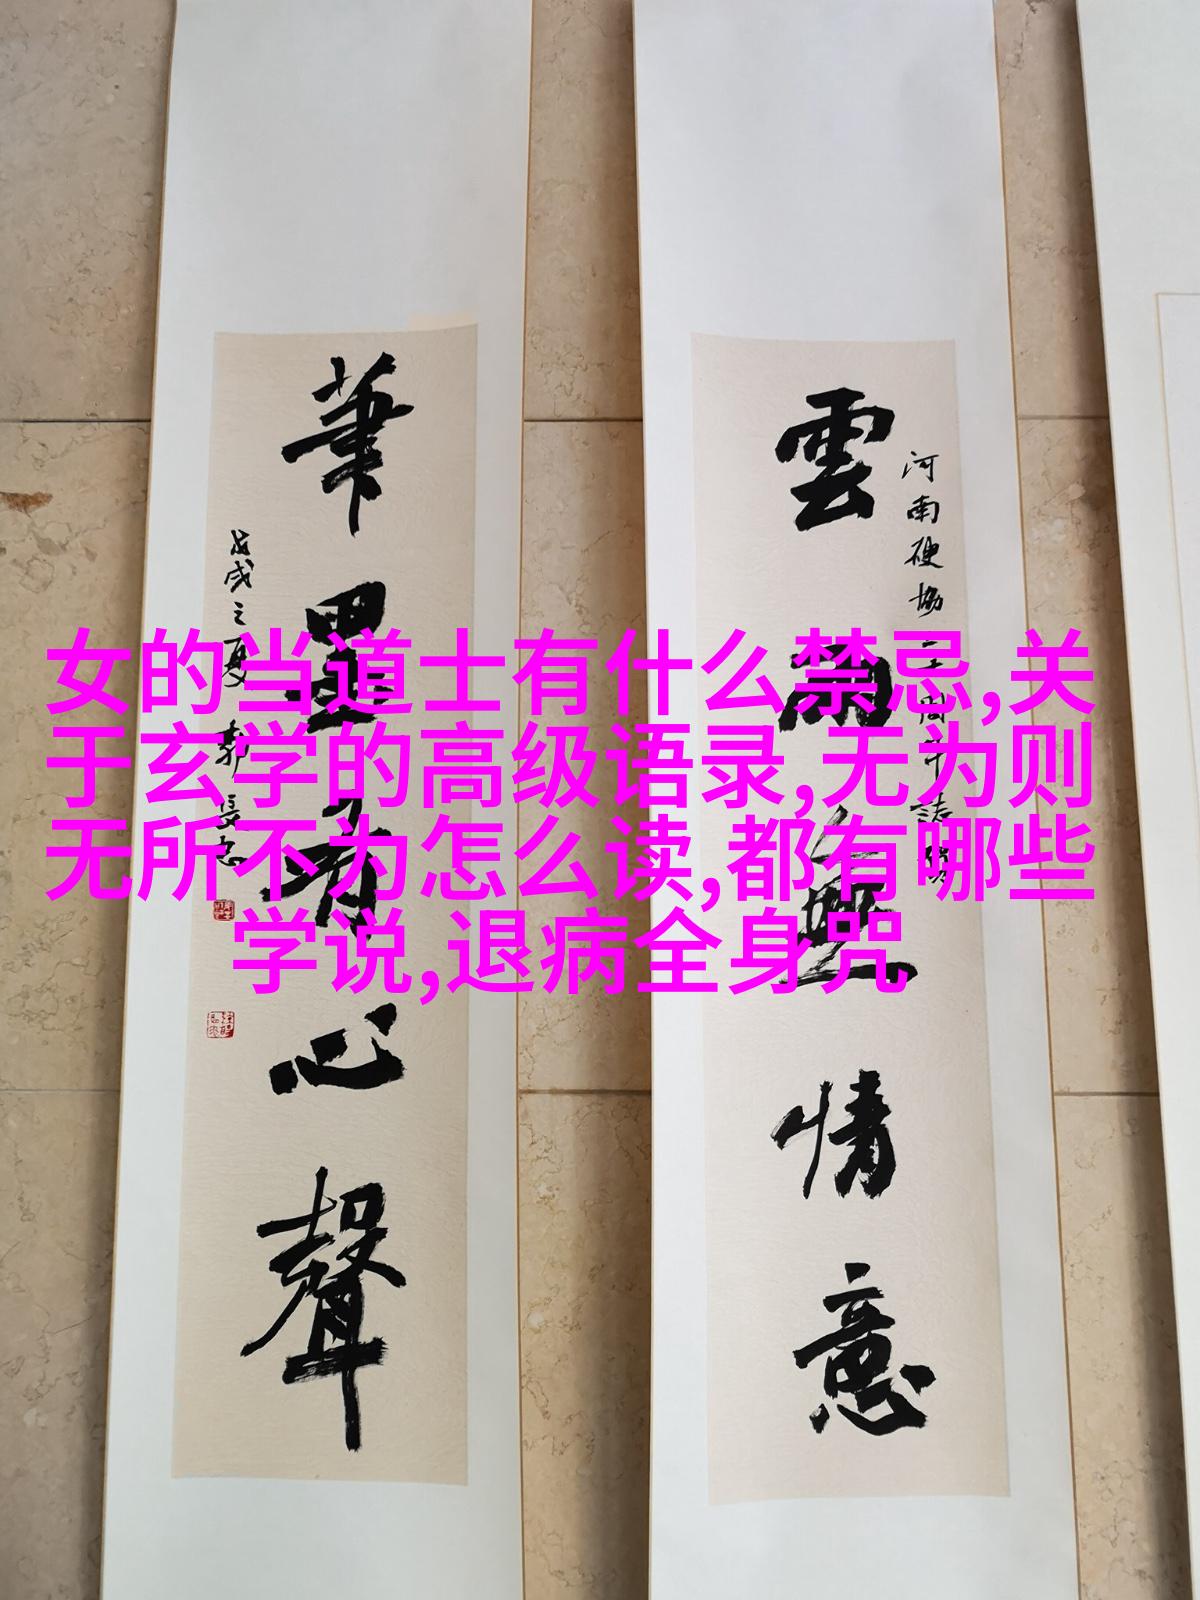 雲雨無情意
河南硬協二十周年誌賀
筆墨有心聲
戊戌之夏
女的当道士有什么禁忌,关
于玄学的高级语录,无为则
无所不为怎么读,都有哪些
学说,退病全身咒